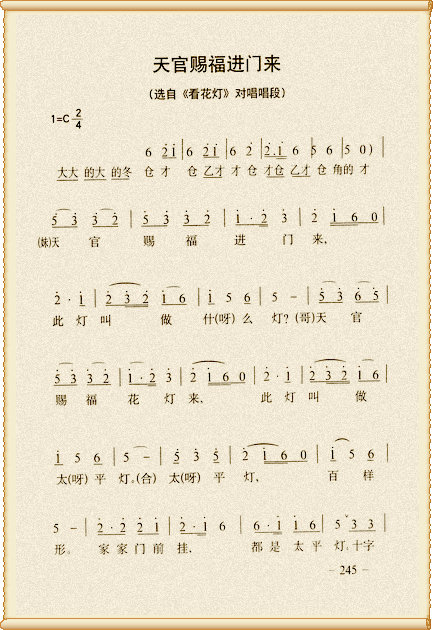 天官赐福进门来
（选自《看花灯》对唱唱段）
1=C 2/4
6 2 i 6 2 i 6 2 2. i 6 5 6 5 0)
大大 的大 的冬 仓 才 仓 乙才 才 仓 才仓 乙才 仓 角的 才
5 3 3 2 5 3 3 2 i · 2 3 2 i 6 0
(妹)天 官 赐 福 进 门 来，
2 · i 2 3 2 i 6 i 5 6 5 – 5 3 6 5
此 灯 叫 做 什(呀) 么 灯？(哥)天 官
5 3 3 2 i · 2 3 2 i 6 0 2 · i 2 3 2 i 6
赐 福 花 灯 来， 此 灯 叫 做
i 5 6 5 – 5 3 5 2 i 6 0 i 5 6
太(呀) 平 灯。(合) 太(呀) 平 灯， 百 样
5 – 2 · 2 2 i 2 · i 6 6 · i i 6 5 3 3
形。 家 家 门 前 挂， 都 是 太 平 灯。十字
– 245 –